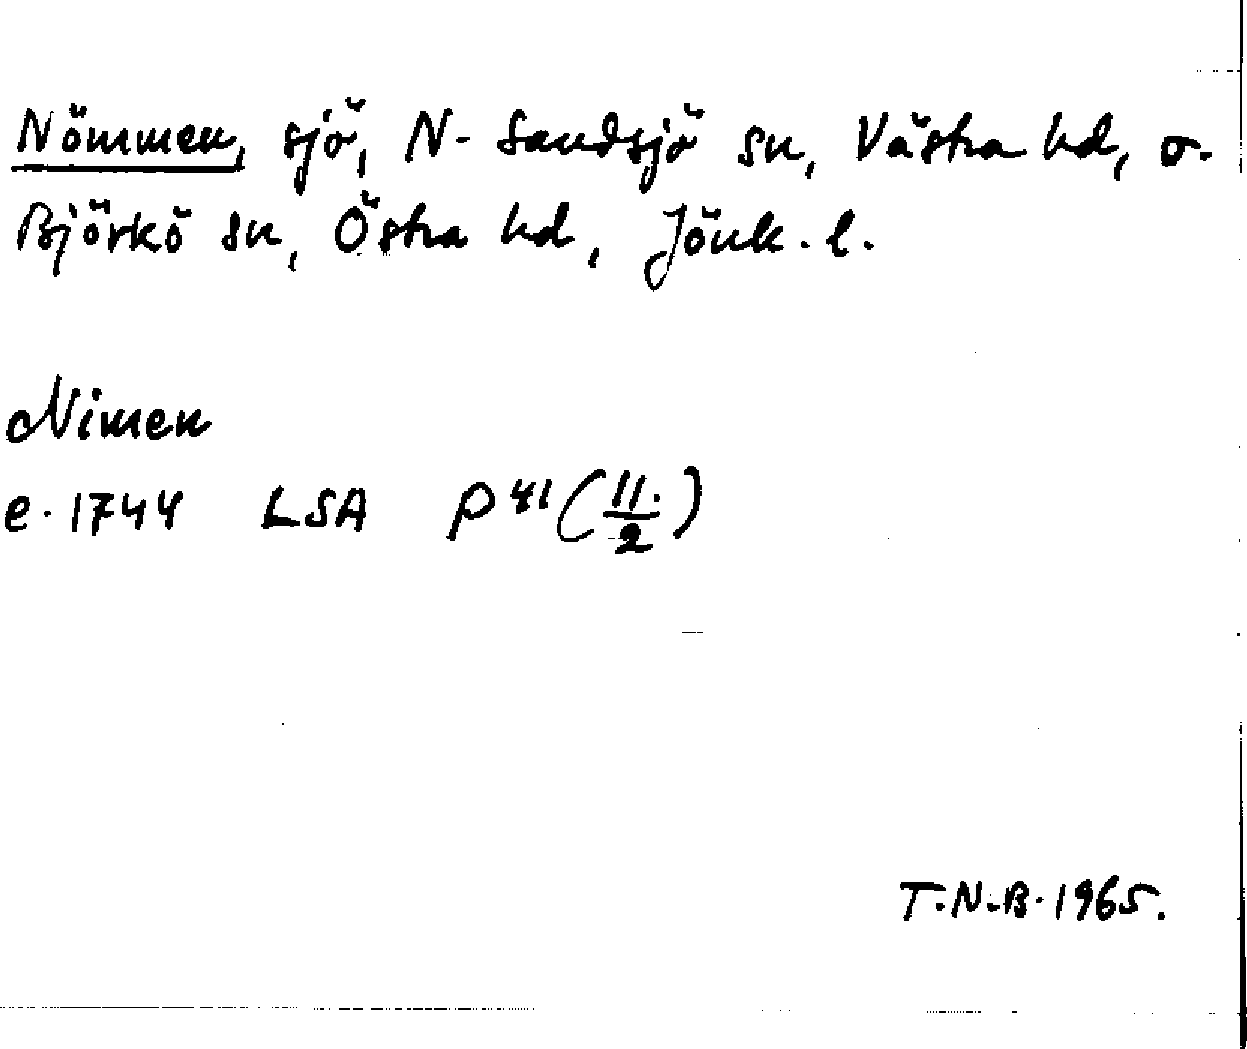 Nömmen, sjö, N. Sandsjö sn, Västra hd, o.
Björkö sn, Östra hd, Jönk. l.
Nimen
e. 1744 LSA P 41 (11./2)
T.N.B. 1965.